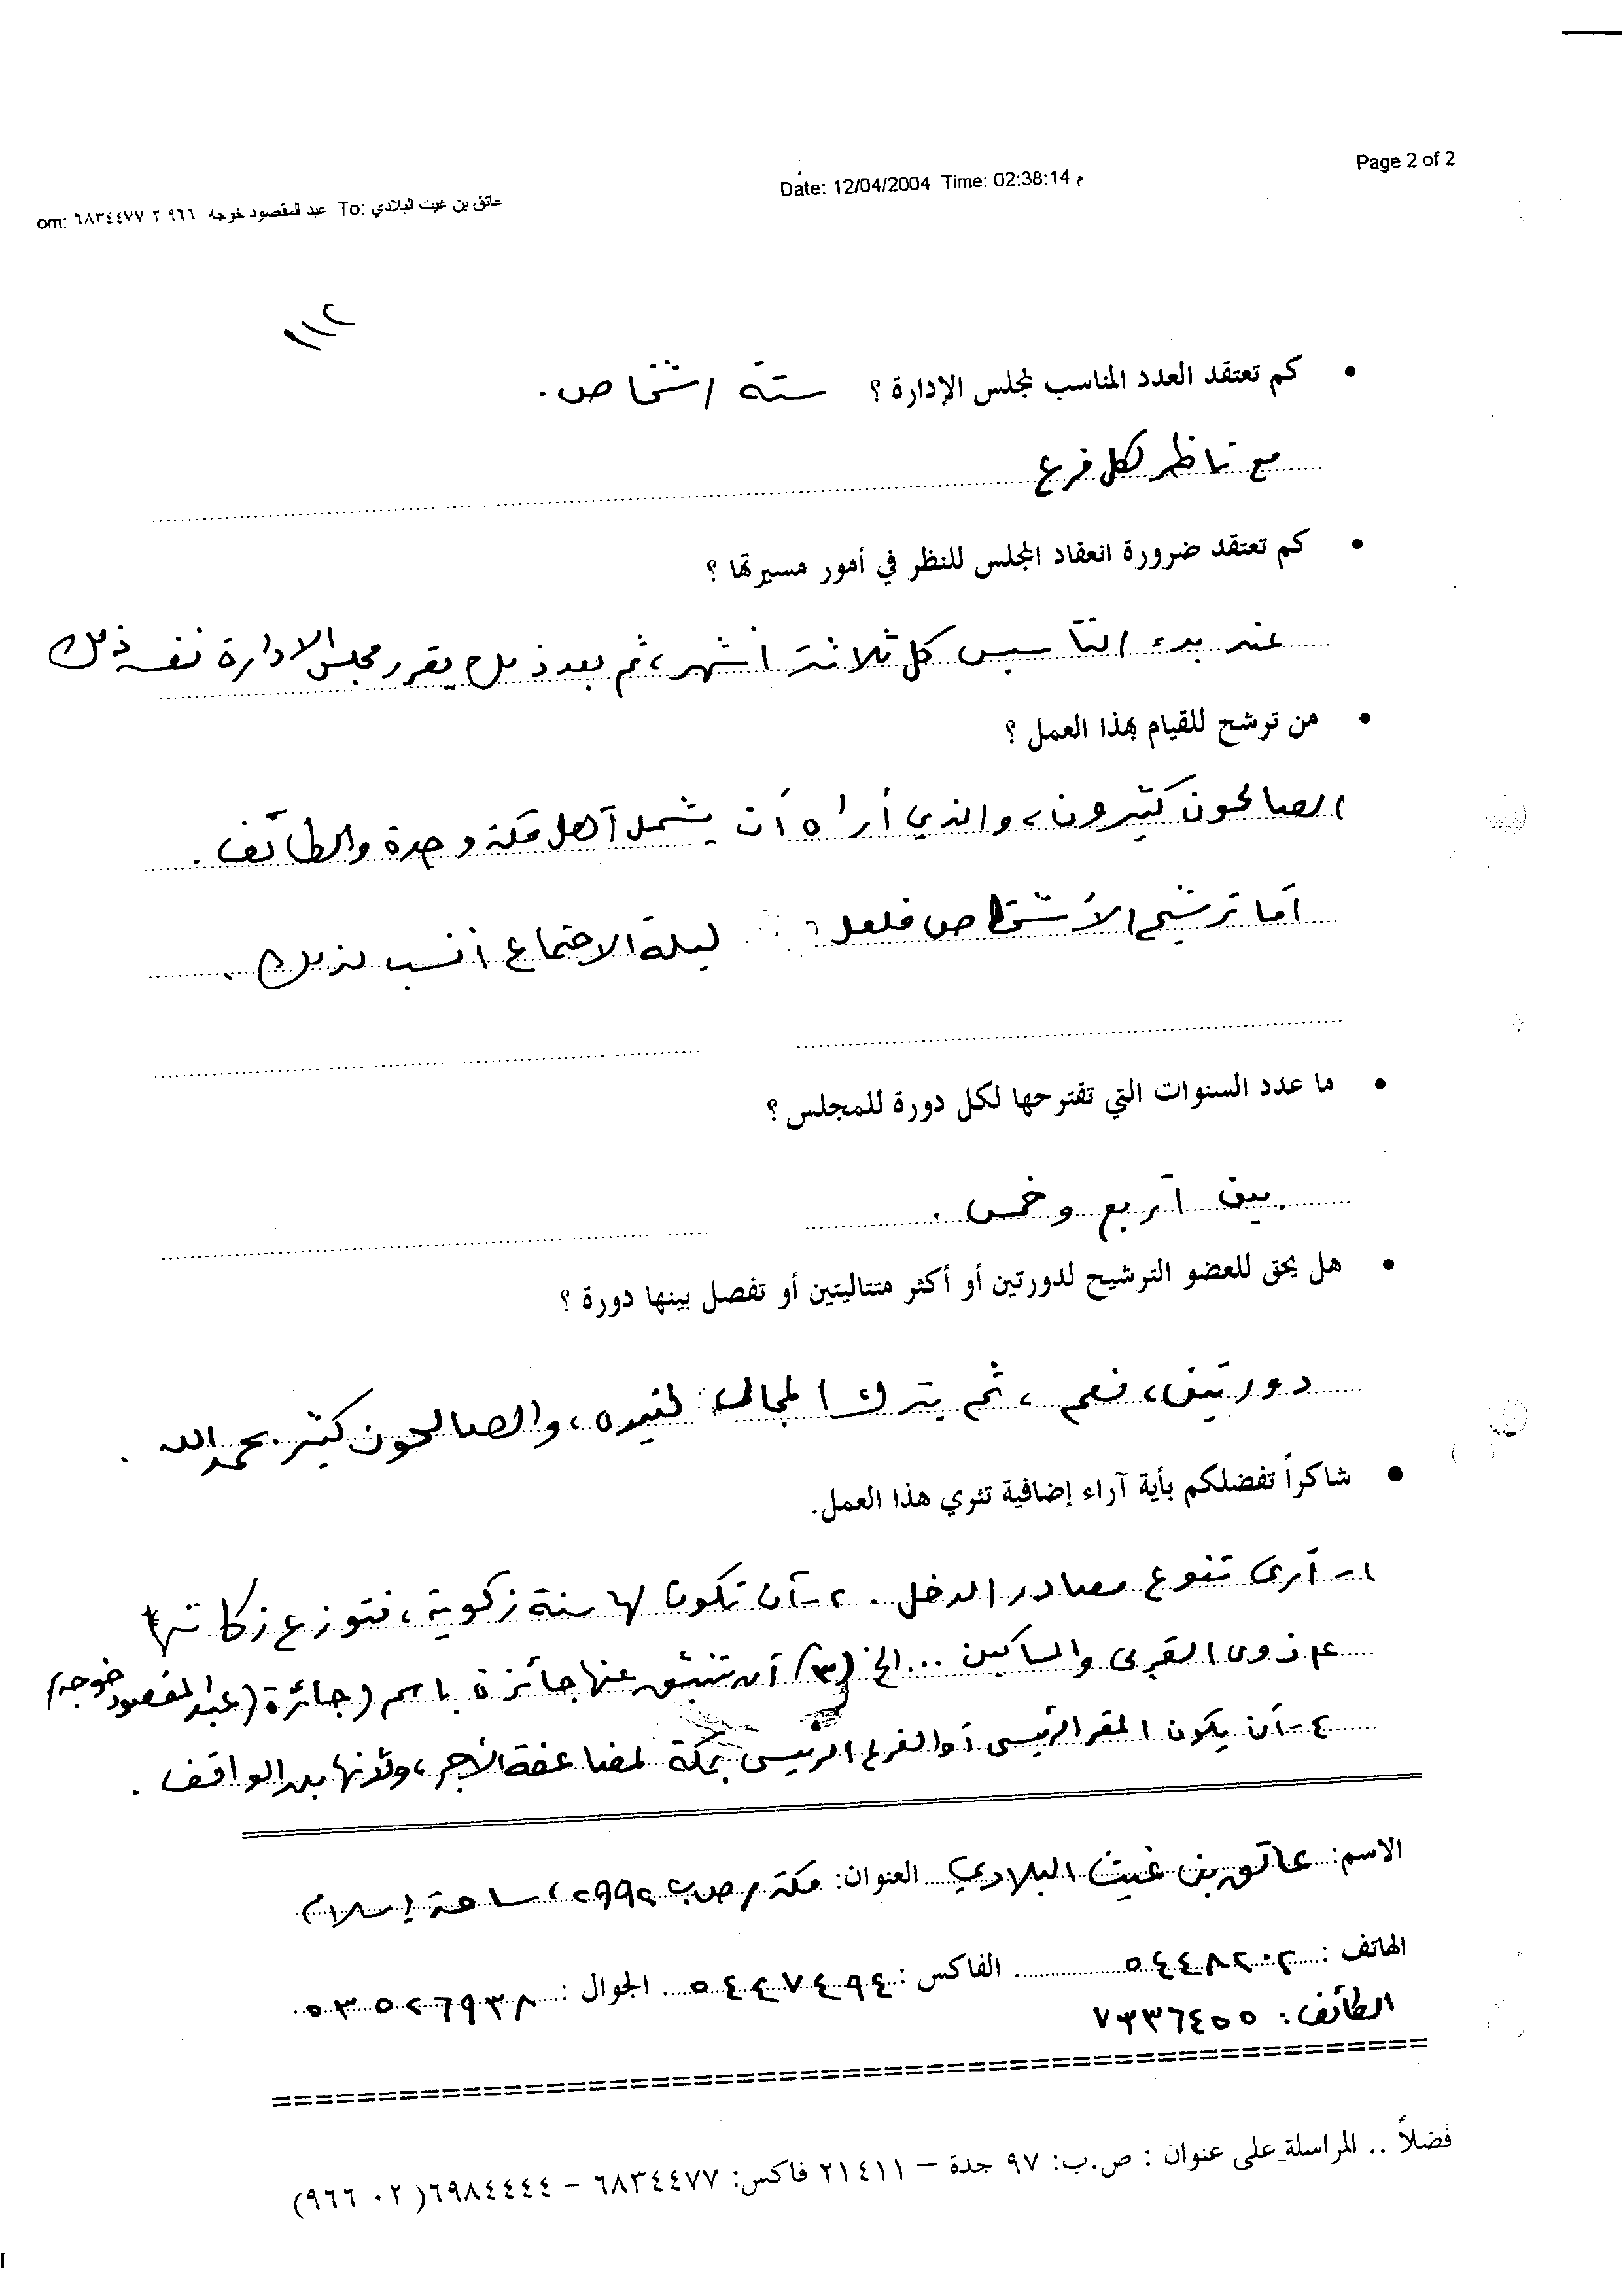 Page 2 of 2
Date: 12/04/2004 Time: 02:38:14 م
om: ٦٨٣٤٤٧٧ ٢ ٩٦٦ عبد المقصود خوجه To: عاتق بن غيث البلادي
١١٢
• كم تعتقد العدد المناسب لمجلس الإدارة ؟ ستة اشخاص.
مع ناظر لكل فرع
• كم تعتقد ضرورة انعقاد المجلس للنظر في أمور مسيرتها ؟
عند بدء التأسيس كل ثلاثة أشهر، ثم بعد ذلك يقرر مجلس الادارة نفسه ذلك
• من ترشح للقيام بهذا العمل ؟
الصالحون كثيرون، والذي أراه أن يشمل أهل مكة وجدة والطائف.
أما ترشيح الأشخاص فلعل ليلة الاجتماع أنسب لذلك.
• ما عدد السنوات التي تقترحها لكل دورة للمجلس ؟
بين أربع وخمس.
• هل يحق للعضو الترشيح لدورتين أو أكثر متتاليتين أو تفصل بينها دورة ؟
دورتين، نعم، ثم يترك المجال لغيره، والصالحون كثير بحمد الله.
• شاكراً تفضلكم بأية آراء إضافية تثري هذا العمل.
١- أرى تنوع مصادر الدخل. ٢- أن تكون لها سنة زكوية، فتوزع زكاتها
على ذوي القربى والمساكين ... الخ (٣) أن تنبثق عنها جائزة باسم (جائزة (عبد المقصود خوجه)
٤- أن يكون المقر الرئيسي أو الفرع الرئيسي بمكة لمضاعفة الأجر، ولأنها بلد الواقف.
الاسم: عاتق بن غيث البلادي العنوان: مكة / ص ب ٢٩٩٢، ساحة إسلام
الهاتف: ٥٤٤٨٢٠٢ الفاكس: ٥٤٢٧٤٩٤ الجوال: ٠٥٣٥٢٦٩٣٨
الطائف: ٧٣٣٦٤٥٥
فضلاً .. المراسلة على عنوان : ص.ب: ٩٧ جدة – ٢١٤١١ فاكس: ٦٨٣٤٤٧٧ – ٦٩٨٤٤٤٤ (٠٢ ٩٦٦)